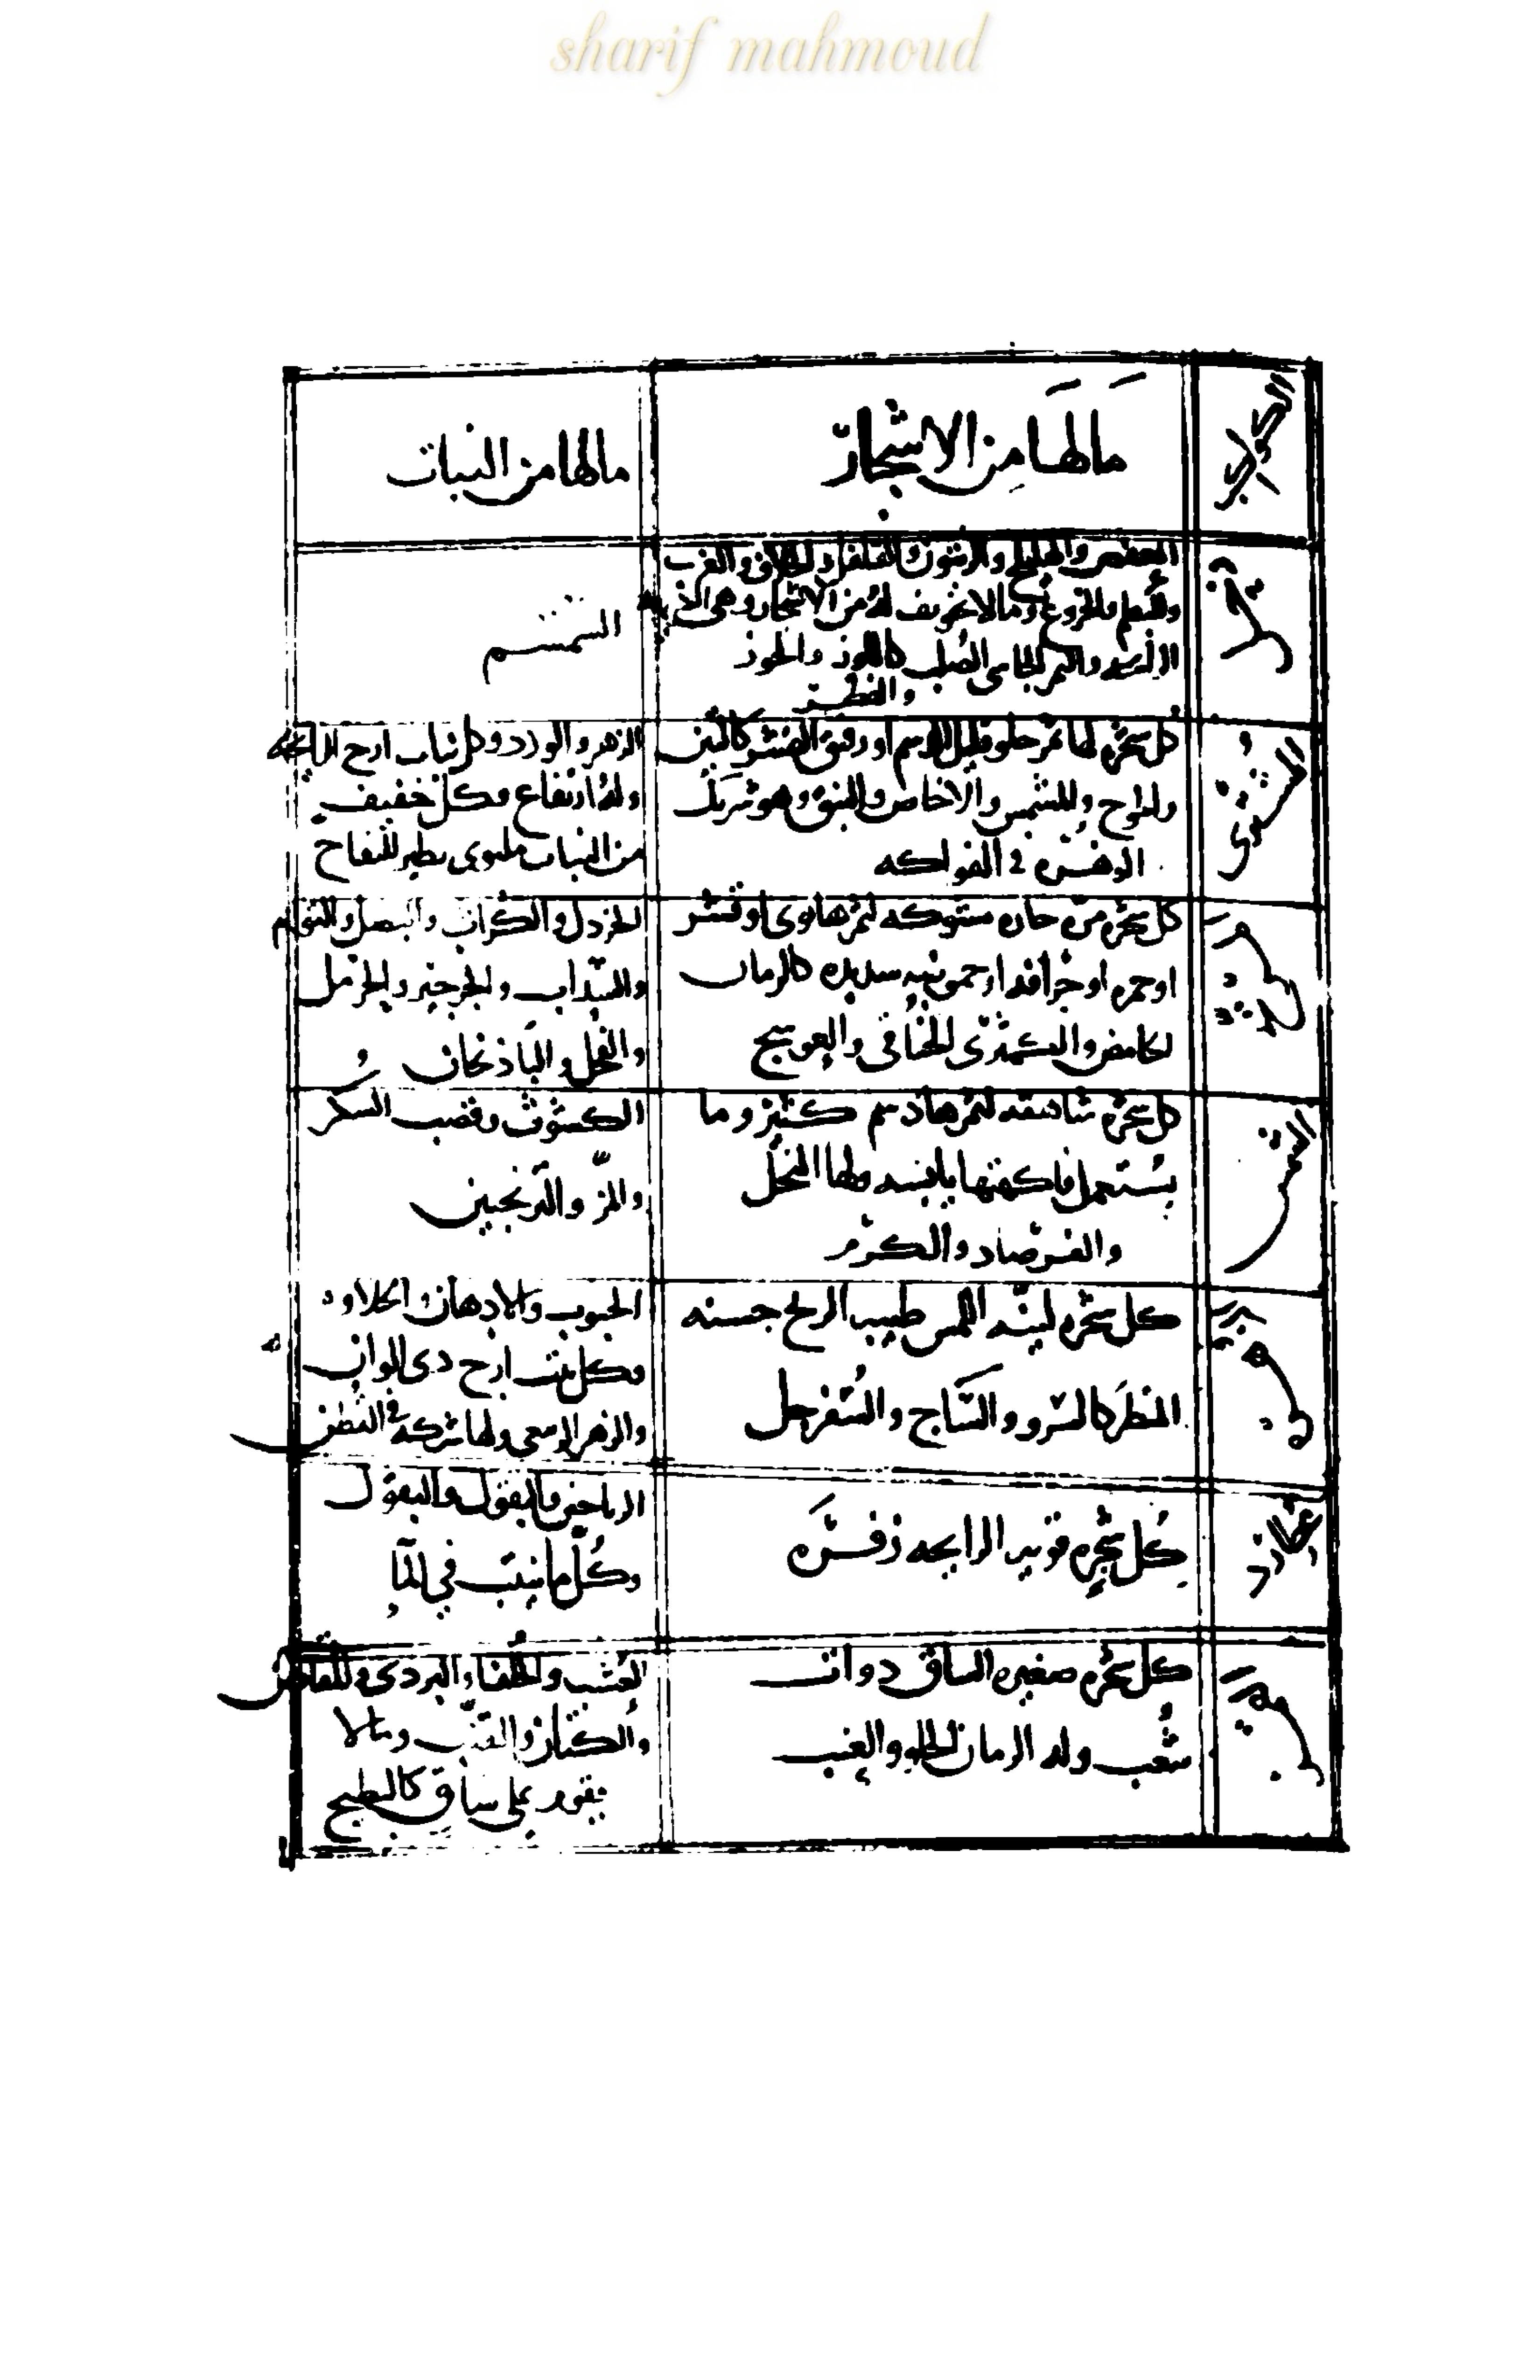 sharif mahmoud
الكواكب
ما لها من الاشجار
ما لها من النبات
زحل
العفص والهليلج والزيتون والفلفل والخلاف والغرب
والخروع وما لا له من الاشجار وهى
والثمر الجاسى الصلب كاللوز والجوز
السمسم
المشترى
كل شجره لها ثمر حلو قليل الدسم او رقيق القشر كالتين
والمشمش والاجاص والنبق وهو شريك
الزهره فى الفواكه
الزهر والورد وكل نبات ارج الرايحه
وله ارتفاع وكل خفيف
من النبات يطير
المريخ
كل شجره مره حاره مشوكه لثمرها نوى او قشر
او حمره او حرافه او حموضه شديده كالرمان
الحامض والكمثرى والعوسج
الخردل والكراث والبصل والثوم
والسذاب والجرجير والحرمل
والفجل والباذنجان
الشمس
كل شجره شاهقه لثمرها دسم كثير وما
يستعمل فاكهتها يابسه ولها النخل
والفرصاد والكرم
الكشوث وقصب السكر
والمن والترنجبين
الزهره
كل شجره لينه اللمس طيب الريح حسنه
المنظر كالسرو والساج والسفرجل
الحبوب والادهان الحلاوه
وكل نبت ارج ذى الوان
والزهر الربيعى ولها شركه فى القطن
عطارد
كل شجره قويه الرايحه زفره
الرياحين والبقول
وكل ما ينبت في الماء
القمر
كل شجره صغيره الساق ذوات
شعب وله الرمان الحلو والعنب
العشب والحلفاء والبردى
والكتان والقنب وما لا
يقوم على ساق كالبطيخ